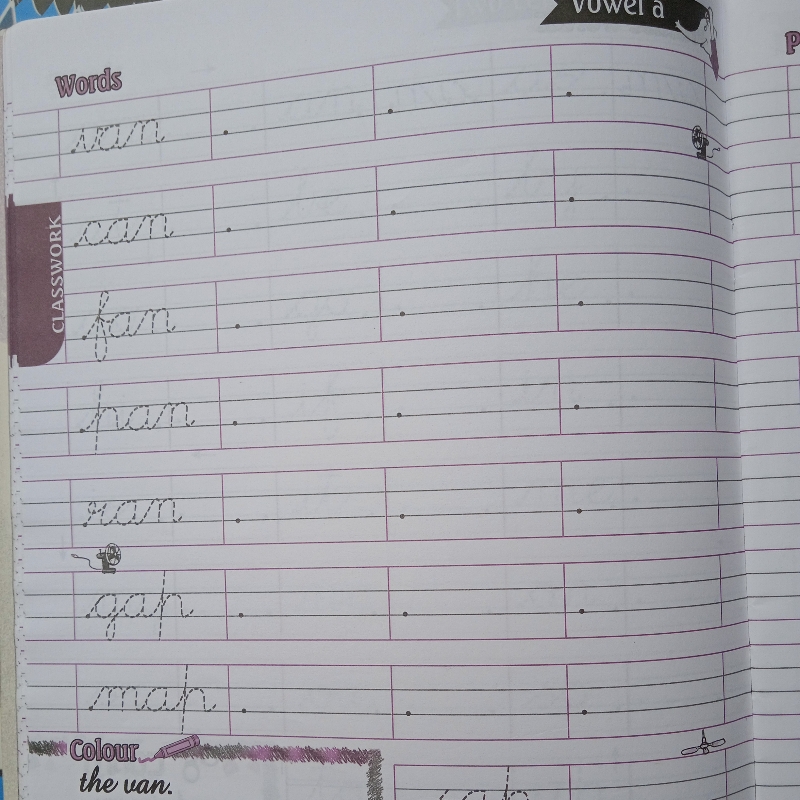 Vowel a
Words
van
can
fan
pan
ran
gap
map
CLASSWORK
Colour
the van.